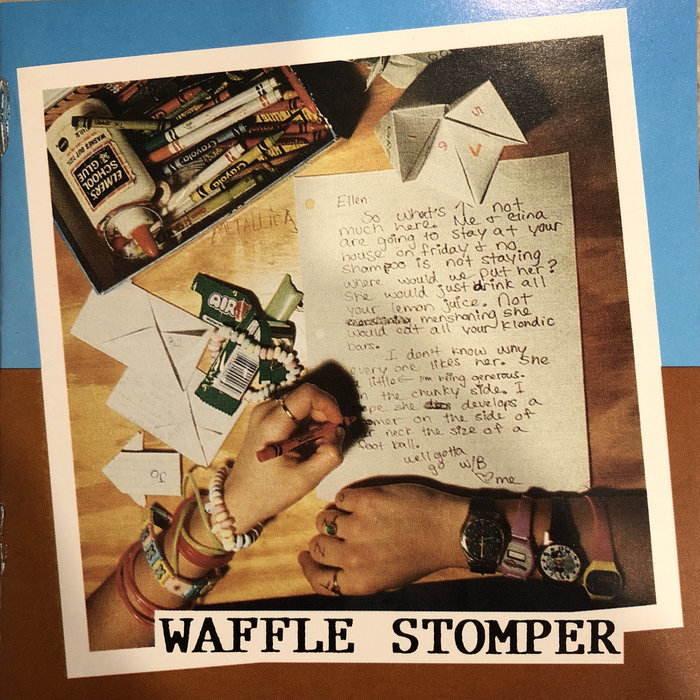 ELMER'S
SCHOOL
GLUE
WASHES OUT
Crayola
Crayola
METALLICA
5
1
6
Ellen:
So what's ↑ not
much here. Me & elina
are going to stay at your
house on friday & no,
shampoo is not staying
where would we put her?
She would just drink all
your lemon juice. Not
menshoning she
would eat all your Klondic
bars.
I don't know why
every one likes her. She
a little ← I'm being generous.
n the chunky side. I
ope she develops a
omer on the side of
r neck the size of a
foot ball.
well gotta
go W/B
♡ me
AIR
WAFFLE STOMPER